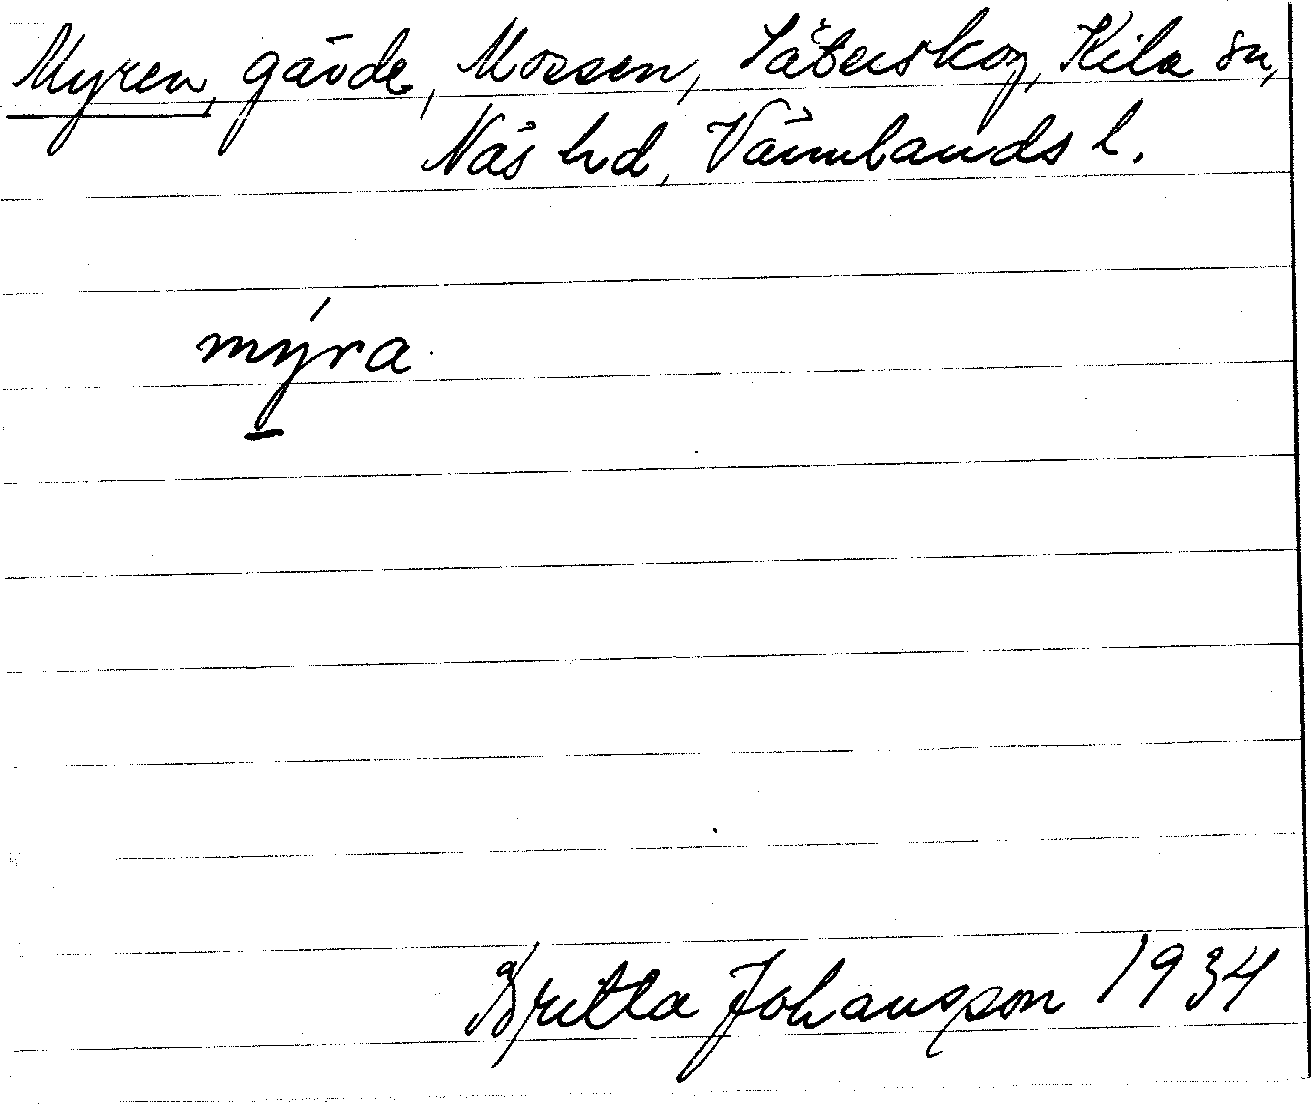 Myren, gärde, Mossen, Säterskog, Kila sn,
Näs hd, Värmlands l.
mýra
Britta Johansson 1934